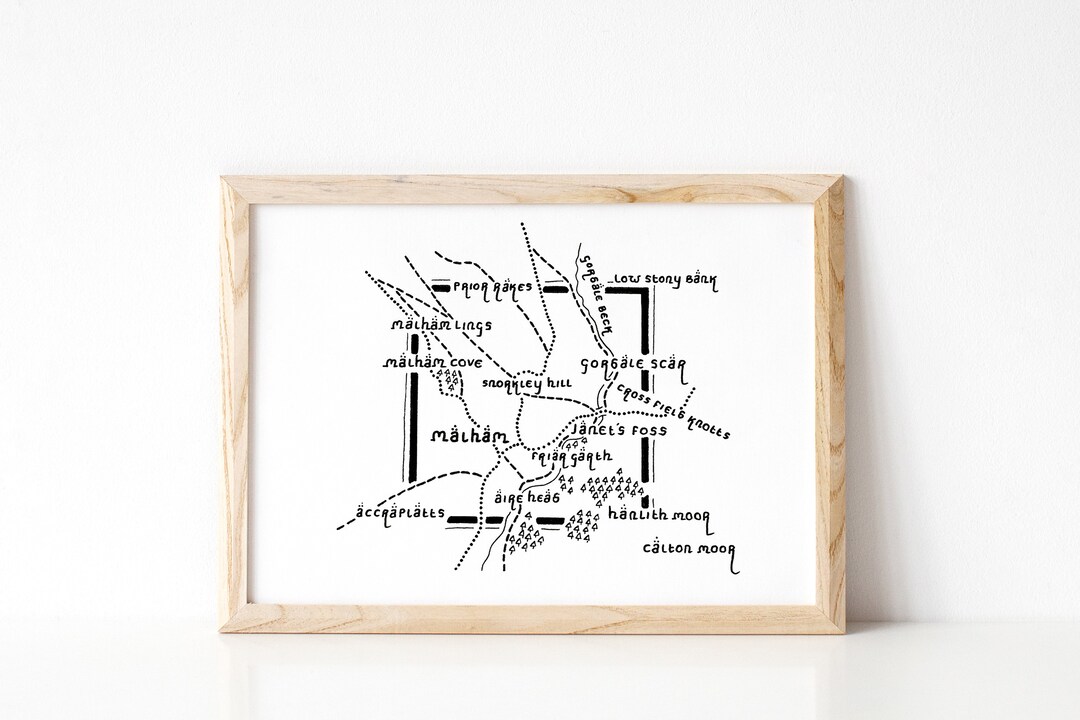 Prior Rakes
Low Stony Bank
Gordale Beck
Malham Lings
Malham Cove
Gordale Scar
Snorkley Hill
Cross Field Knotts
Malham
Janet's Foss
Friar Garth
Aire Head
Accraplatts
Hanlith Moor
Calton Moor